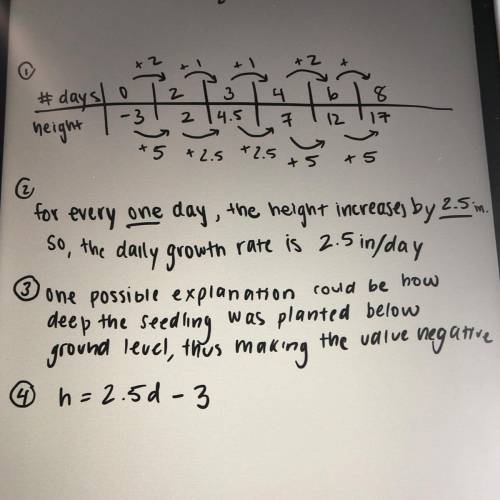 ①
+2 +1 +1 +2 +
# days 0 2 3 4 6 8
height -3 2 4.5 7 12 17
+5 +2.5 +2.5 +5 +5
②
for every one day, the height increases by 2.5 in.
So, the daily growth rate is 2.5 in/day
③ one possible explanation could be how
deep the seedling was planted below
ground level, thus making the value negative
④ h = 2.5d - 3